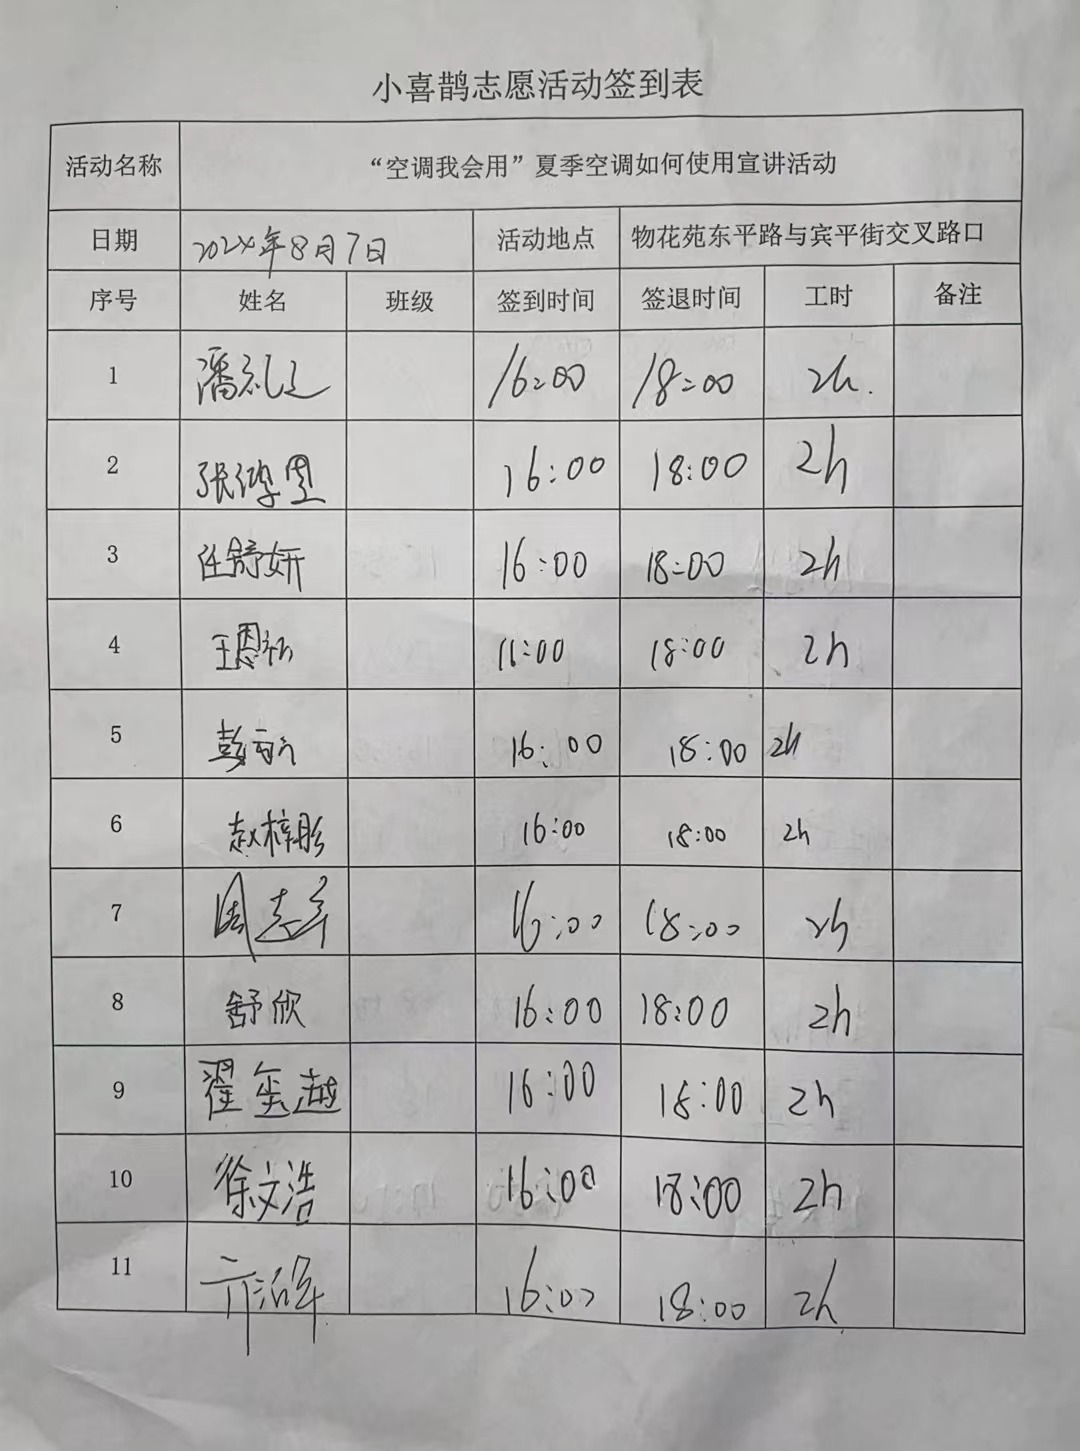 小喜鹊志愿活动签到表
活动名称 “空调我会用”夏季空调如何使用宣讲活动
日期 2024年8月7日 活动地点 物花苑东平路与宾平街交叉路口
序号 姓名 班级 签到时间 签退时间 工时 备注
1 潘 16:00 18:00 2h.
2 张 16:00 18:00 2h
3 任舒妍 16:00 18:00 2h
4 王恩 16:00 18:00 2h
5 彭 16:00 18:00 2h
6 赵梓彤 16:00 18:00 2h
7 周志 16:00 18:00 2h
8 舒欣 16:00 18:00 2h
9 翟玺越 16:00 18:00 2h
10 徐文浩 16:00 18:00 2h
11 16:00 18:00 2h